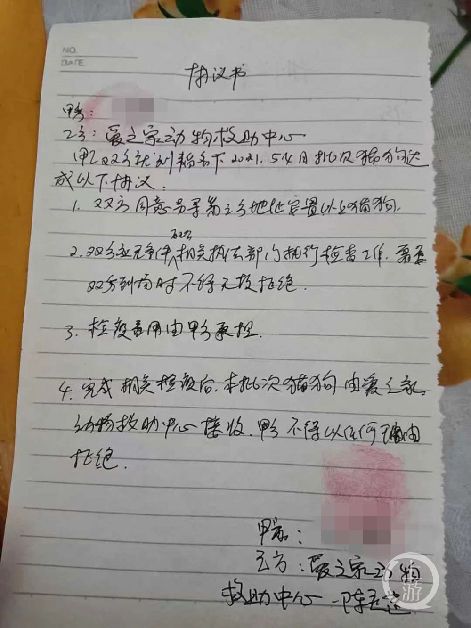 NO.
DATE
协议书
甲方：
乙方：爱之家动物救助中心
甲乙双方就刘 名下2021.5.4日批次猫狗达
成以下协议.
1. 双方同意另寻第三方地址安置以上猫狗.
2. 双方应无条件配合相关执法部门执行检查工作，需要
双方到场时不得无故拒绝.
3. 检疫费用由甲方承担.
4. 完成相关检疫后，本批次猫狗由爱之家
动物救助中心接收，甲方不得以任何理由
拒绝.
甲方：
乙方：爱之家动物
救助中心 陈
游